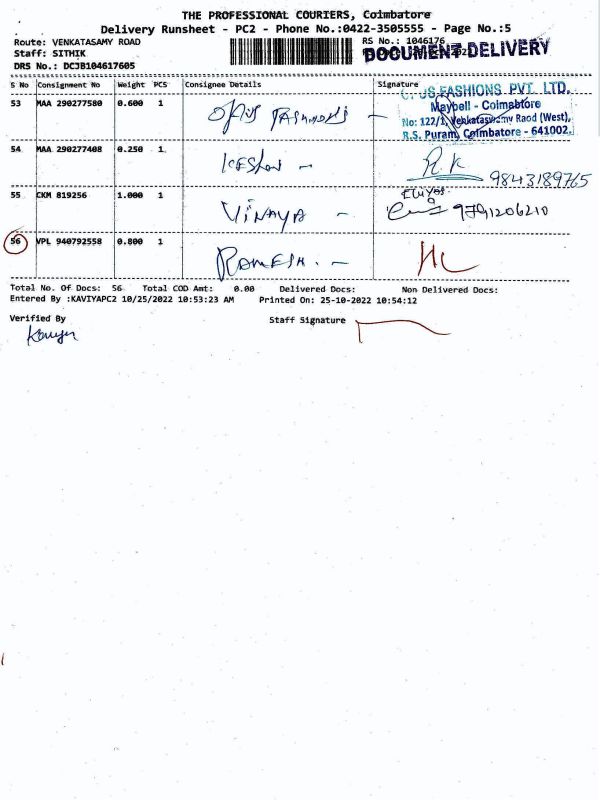 THE PROFESSIONAL COURIERS, Coimbatore
Delivery Runsheet - PC2 - Phone No.:0422-3505555 - Page No.:5
Route: VENKATASAMY ROAD
RS No.: 1046176
Staff: SITHIK
DOCUMENT DELIVERY
DRS No.: DCJB104617605
S No Consignment No Weight PCS Consignee Details Signature
53 MAA 290277580 0.600 1
US FASHIONS PVT. LTD.
Maybell - Coimabtore
No: 122/1, Venkataswamy Raod (West),
R.S. Puram, Coimbatore - 641002.
54 MAA 290277408 0.250 1 R.K 9843189765
55 CKM 819256 1.000 1 VINAYA - 9791206210
56 VPL 940792558 0.800 1 RAMESH. -
Total No. Of Docs: 56 Total COD Amt: 0.00 Delivered Docs: Non Delivered Docs:
Entered By :KAVIYAPC2 10/25/2022 10:53:23 AM Printed On: 25-10-2022 10:54:12
Verified By Staff Signature